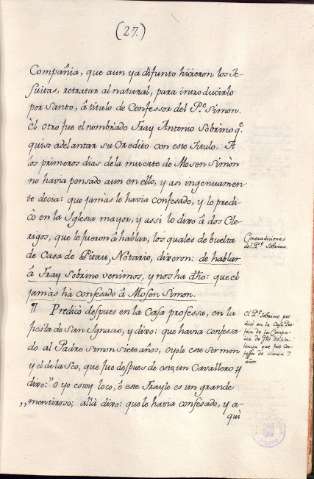 (27.)
Compañia, que aun ya difunto hizieron los Je-
suitas, retratar al natural, para introducirlo
por Santo, á titulo de Confessor del P.e Simon.
El otro fue el nombrado Fray Antonio Sobrino q.e
quiso adelantar su Credito con este titulo. A
los primeros dias de la muerte de Mosen Simon
no havia pensado aun en ello, y asi ingenuamen-
te decia: que jamàs le havia Confesado, y lo predi-
cò en la Iglesia mayor, y assi lo dixo à dos Cle-
rigos, que le fueron à hablar, los quales de buelta
de Casa de Notario, dixeron: de hablar
à Fray Sobrino venimos, y nos ha dho: que el
jamàs ha confesado à Mosen Simon.
¶ Predicò despues en la Casa professa, en la
fiesta de San Ignacio, y dixo: que havia confesa-
do al Padre Simon siete años, oyole este sermon
y el de la que fue despues de un Cavallero y
dixo: "o yo estoy loco, ò este Frayle es un grande
,,mentiroso; allà dixo: que le havia confesado, y a-
qui
del P.e Sobrino
El P.e Sobrino pre
dicò en la Casa